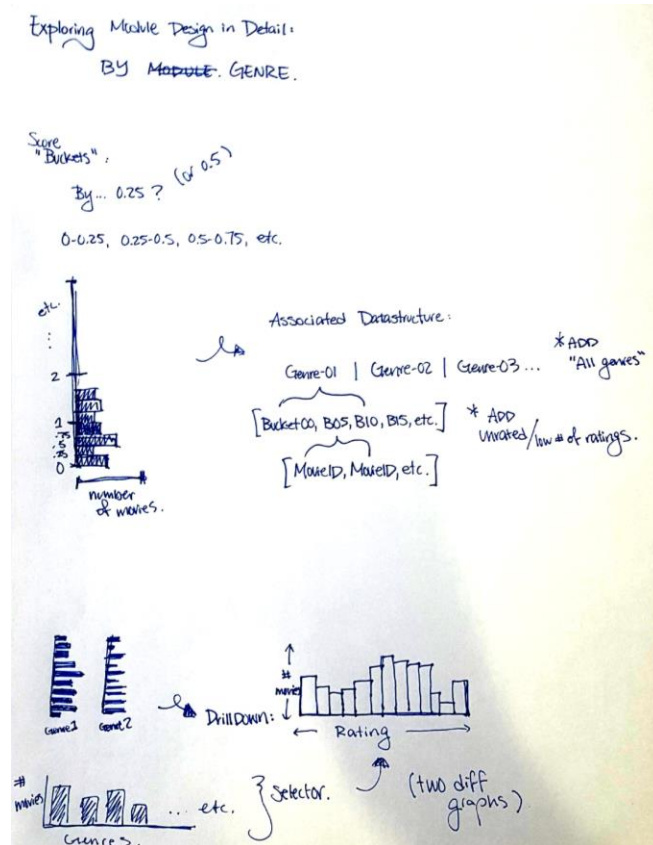 Exploring Module Design in Detail:
BY MODULE. GENRE.
Score
"Buckets":
By... 0.25? (or 0.5)
0-0.25, 0.25-0.5, 0.5-0.75, etc.
etc.
...
2
1
.75
.5
.25
0
number
of movies.
Associated Datastructure:
Genre-01 | Genre-02 | Genre-03...
* ADD
"All genres"
[Bucket00, B05, B10, B15, etc.]
* ADD
unrated/low # of ratings.
[MovieID, MovieID, etc.]
Genre1
Genre2
DrillDown:
#
movies
Rating
#
movies
... etc.
Genres.
Selector.
(two diff
graphs).